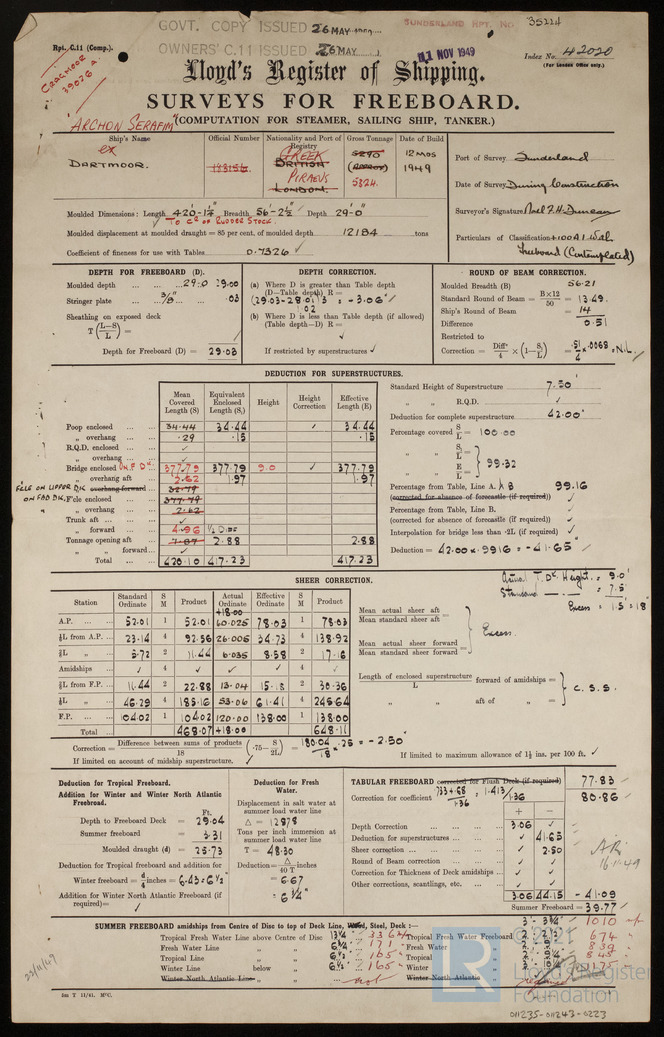 GOVT. COPY ISSUED 26 MAY
SUNDERLAND RPT. No. 35224
Rpt. C.11 (Comp.).
OWNERS' C.11 ISSUED 26 MAY
01 NOV 1949
Index No. 42020
(For London Office only.)
Lloyd's Register of Shipping.
SURVEYS FOR FREEBOARD.
"ARCHON SERAFIM"
(COMPUTATION FOR STEAMER, SAILING SHIP, TANKER.)
Ship's Name
Official Number
Nationality and Port of Registry
Gross Tonnage
Date of Build
ex
DARTMOOR.
183156
GREEK
BRITISH
PIRAEUS
LONDON.
5290
(APPROX)
5324.
12 MOS
1949
Port of Survey Sunderland
Date of Survey During Construction
Surveyor's Signature
Particulars of Classification +100A1 With
Freeboard (Contemplated)
Moulded Dimensions: Length 420'-1¼" Breadth 56'-2½" Depth 29'-0"
TO CR OF RUDDER STOCK.
Moulded displacement at moulded draught = 85 per cent. of moulded depth 12184 tons
Coefficient of fineness for use with Tables 0.7326
DEPTH FOR FREEBOARD (D).
Moulded depth 29.0 29.00
Stringer plate 3/8" .03
Sheathing on exposed deck
T (L–S/L) =
Depth for Freeboard (D) = 29.03
DEPTH CORRECTION.
(a) Where D is greater than Table depth
(D—Table depth) R =
(29.03-28.01)3 = -3.06"
1.02
(b) Where D is less than Table depth (if allowed)
(Table depth—D) R =
If restricted by superstructures
ROUND OF BEAM CORRECTION.
Moulded Breadth (B) 56.21
Standard Round of Beam = B×12/50 = 13.49
Ship's Round of Beam = 14
Difference 0.51
Restricted to
Correction = Diffce/4 × (1–S₁/L) = .51/4 × .0068 = NIL.
DEDUCTION FOR SUPERSTRUCTURES.
Mean Covered Length (S)
Equivalent Enclosed Length (S₁)
Height
Height Correction
Effective Length (E)
Poop enclosed 34.44 34.44 34.44
„ overhang .29 .15 .15
R.Q.D. enclosed
„ overhang
Bridge enclosed 377.79 377.79 9.0 377.79
„ overhang aft 2.62 1.97 1.97
„ overhang forward 32.79
F'cle enclosed 377.79
„ overhang 2.62
Trunk aft
„ forward 4.96
Tonnage opening aft 2.88 2.88
„ „ forward
Total 420.10 417.23 417.23
F'CLE ON UPPER DK
ON FBD DK.
Standard Height of Superstructure 7.50
„ „ R.Q.D.
Deduction for complete superstructure 42.00"
Percentage covered S/L = 100.00
„ „ S₁/L =
„ „ E/L = 99.32
Percentage from Table, Line A. B 99.16
(corrected for absence of forecastle (if required))
Percentage from Table, Line B.
(corrected for absence of forecastle (if required))
Interpolation for bridge less than ·2L (if required)
Deduction = 42.00 × .9916 = -41.65"
SHEER CORRECTION.
Actual T. Dk. Height = 9.0'
Standard = 7.5'
Excess = 1.5' = 18"
Station
Standard Ordinate
S M
Product
Actual Ordinate
Effective Ordinate
S M
Product
+18.00
A.P. 52.01 1 52.01 60.025 78.03 1 78.03
⅙L from A.P. 23.14 4 92.56 26.005 34.73 4 138.92
⅓L „ 5.72 2 11.44 6.035 8.58 2 17.16
Amidships 4 4
⅓L from F.P. 11.44 2 22.88 13.04 15.18 2 30.36
⅙L „ 46.29 4 185.16 53.06 61.41 4 245.64
F.P. 104.02 1 104.02 120.00 138.00 1 138.00
Total 468.07 +18.00 648.11
Mean actual sheer aft
Mean standard sheer aft =
Mean actual sheer forward
Mean standard sheer forward =
Excess.
Length of enclosed superstructure forward of amidships =
L
„ „ aft of „ =
C.S.S.
Correction = Difference between sums of products/18 (·75–S/2L) = 180.04/18 × .25 = -2.50"
If limited on account of midship superstructure.
If limited to maximum allowance of 1½ ins. per 100 ft.
Deduction for Tropical Freeboard.
Addition for Winter and Winter North Atlantic Freeboard.
Ft.
Depth to Freeboard Deck = 29.04
Summer freeboard = 3.31
Moulded draught (d) = 25.73
Deduction for Tropical freeboard and addition for
Winter freeboard = d/4 inches = 6.43 = 6½"
Addition for Winter North Atlantic Freeboard (if required) =
Deduction for Fresh Water.
Displacement in salt water at summer load water line
Δ = 12878
Tons per inch immersion at summer load water line
T = 48.30
Deduction = Δ/40 T inches
= 6.67
= 6¾"
TABULAR FREEBOARD corrected for Flush Deck (if required) 77.83
Correction for coefficient .733+.68/1.36 = 1.413/1.36 80.86
+ –
Depth Correction 3.06
Deduction for superstructures 41.65
Sheer correction 2.50
Round of Beam correction
Correction for Thickness of Deck amidships
Other corrections, scantlings, etc.
3.06 44.15 -41.09
Summer Freeboard = 39.77
16.11.49
SUMMER FREEBOARD amidships from Centre of Disc to top of Deck Line, Wood, Steel, Deck :—
Tropical Fresh Water Line above Centre of Disc 13¼"
Fresh Water Line „ „ 6¾" 171
Tropical Line „ „ 6½" 165
Winter Line below „ 6½" 165
Winter North Atlantic Line „ „
3'-3¾" 1010
Tropical Fresh Water Freeboard 674
Fresh Water „ 839
Tropical „ 845
Winter „ 1175
Winter North Atlantic „
23/11/49
5m T 11/41. MᶜC.
© 2021
Lloyd's Register
Foundation
011235-011243-0223